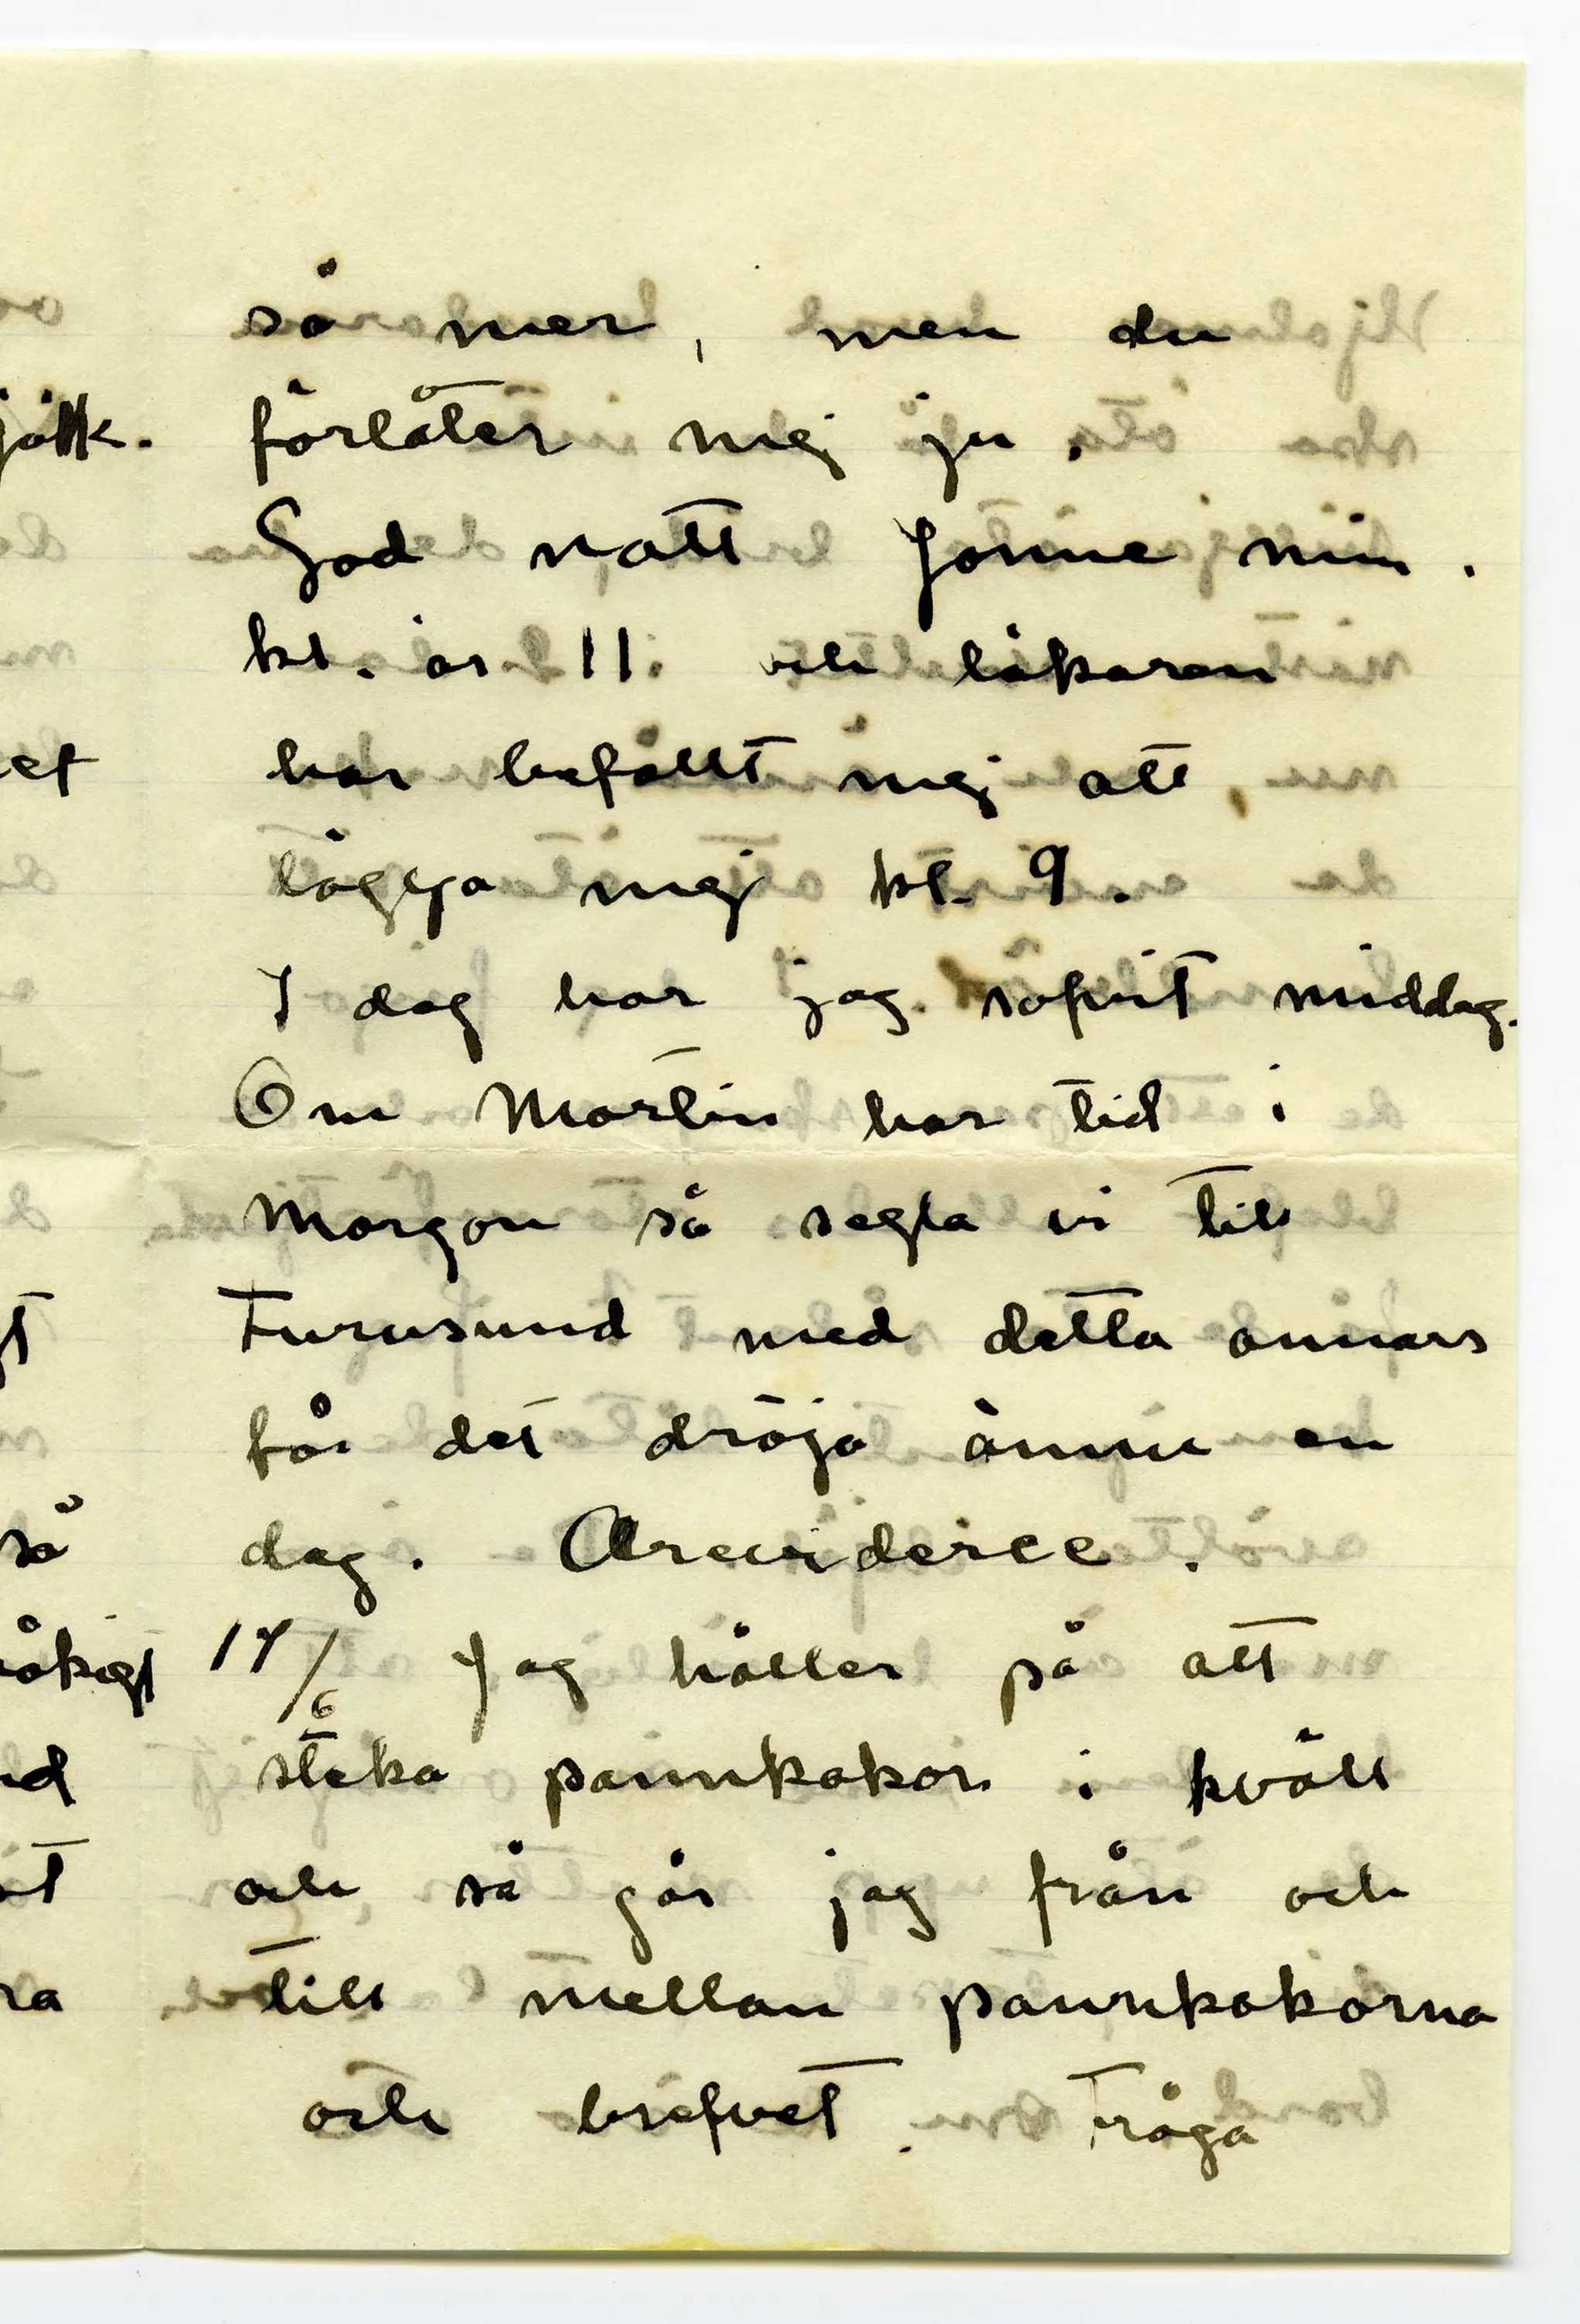 så mer, men du
förlåter mej ju.
God natt Jonne min.
kl. är 11 och läkaren
har befallt mej att
lägga mej kl. 9.
I dag har jag sofvit middag.
Om Martin har tid i
morgon så segla vi till
Furusund med detta annars
får det dröja ännu en
dag. Arewiderce.
17/6 Jag håller på att
steka pannkakor i kväll
och så går jag från och
till mellan pannkakorna
och brefvet. Fråga